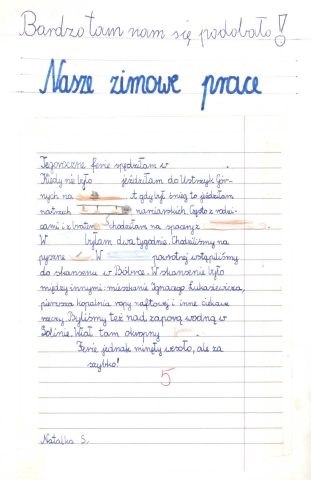 Bardzo tam nam się podobało!
Nasze zimowe prace
Tegoroczne ferie spędziłam w .
Kiedy nie było jeździłam do Ustrzyk Gór-
nych na . A gdy był śnieg to jeździłam
na narciarskich. Często z rodzi-
cami i z bratem chodziłam na spacery z .
W byłam dwa tygodnie. Chodziliśmy na
pyszne . W powrotnej wstąpiliśmy
do skansenu w Bóbrce. W skansenie było
między innymi: mieszkanie Ignacego Łukasiewicza,
pierwsza kopalnia ropy naftowej i inne ciekawe
rzeczy. Byliśmy też nad zaporą wodną w
Solinie. Wiał tam okropny .
Ferie jednak minęły wesoło, ale za
szybko!
5
Natalka S.